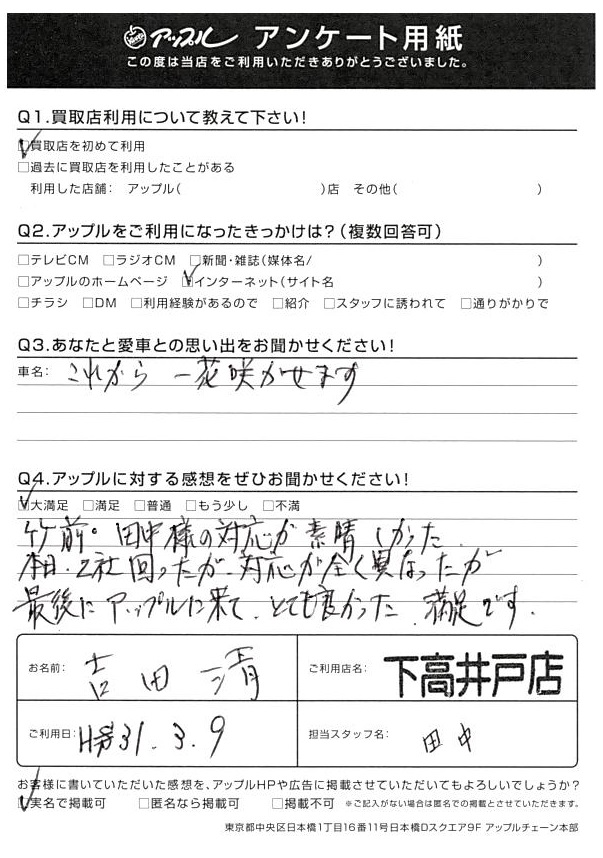 アップル アンケート用紙
この度は当店をご利用いただきありがとうございました。
Q1.買取店利用について教えて下さい!
☑買取店を初めて利用
□過去に買取店を利用したことがある
利用した店舗: アップル( )店 その他( )
Q2.アップルをご利用になったきっかけは?(複数回答可)
□テレビCM □ラジオCM □新聞・雑誌(媒体名/ )
□アップルのホームページ ☑インターネット(サイト名 )
□チラシ □DM □利用経験があるので □紹介 □スタッフに誘われて □通りがかりで
Q3.あなたと愛車との思い出をお聞かせください!
車名: これから 一花咲かせます
Q4.アップルに対する感想をぜひお聞かせください!
☑大満足 □満足 □普通 □もう少し □不満
竹前。田中様の対応が素晴しかった.
本日.2社回ったが.対応が全く異なったが
最後にアップルに来て.とても良かった.満足です.
お名前: 吉田 清 ご利用店名: 下高井戸店
ご利用日: H31.3.9 担当スタッフ名: 田中
お客様に書いていただいた感想を、アップルHPや広告に掲載させていただいてもよろしいでしょうか?
☑実名で掲載可 □匿名なら掲載可 □掲載不可 ※ご記入がない場合は匿名での掲載とさせていただきます。
東京都中央区日本橋1丁目16番11号日本橋Dスクエア9F アップルチェーン本部